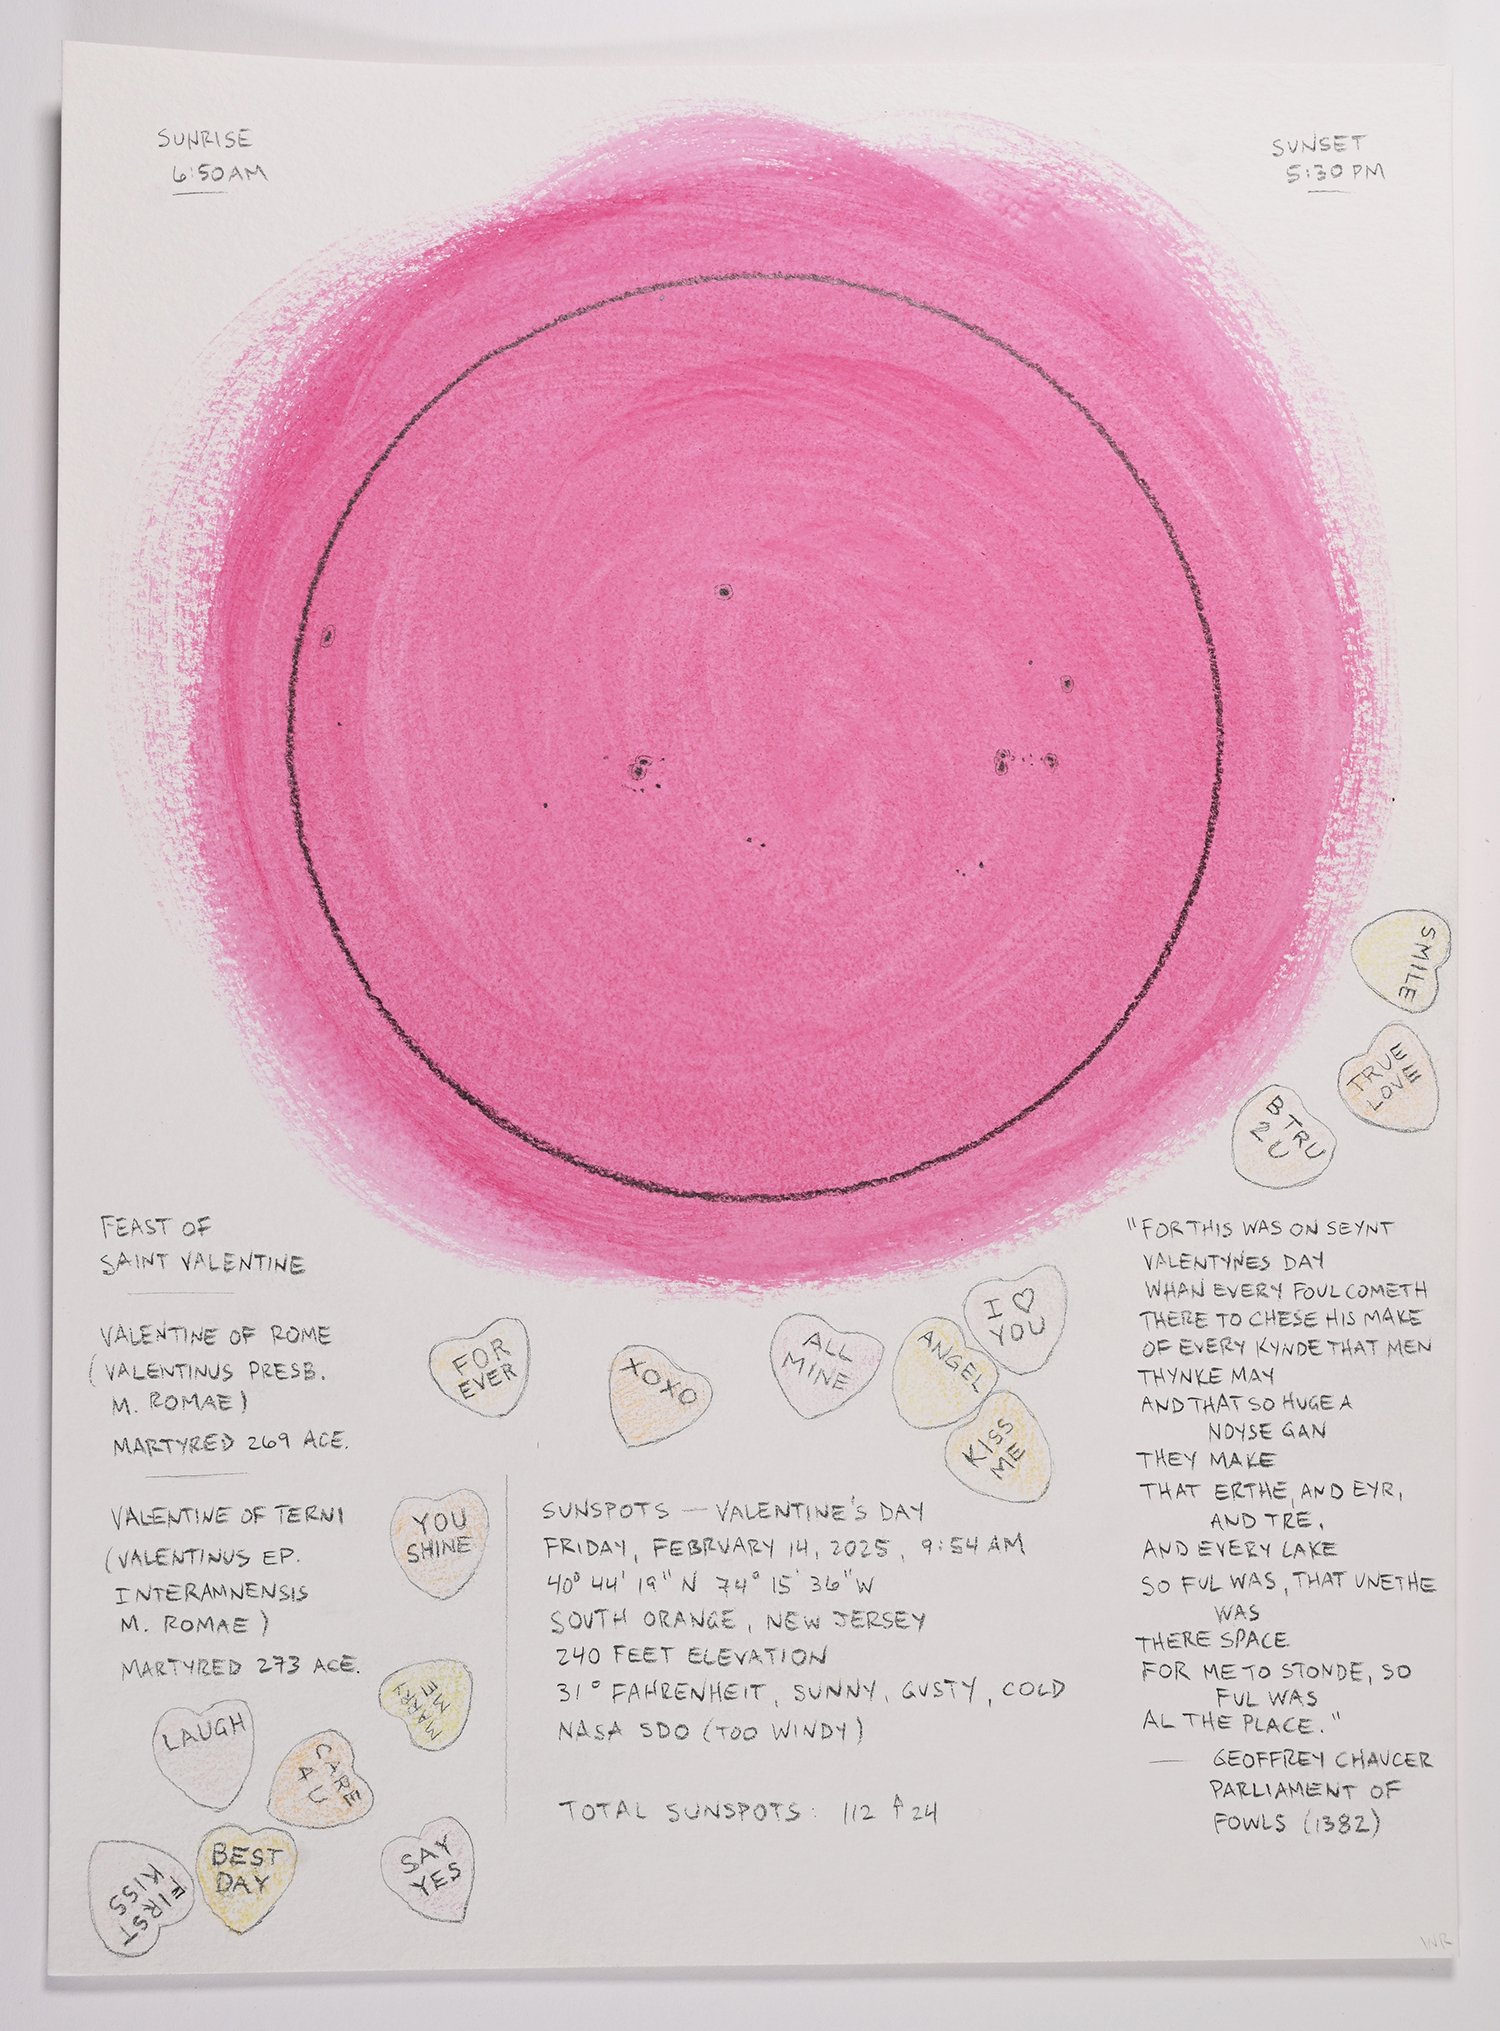 SUNRISE
6:50AM
SUNSET
5:30 PM
SMILE
TRUE
LOVE
B TRU
2 U
FEAST OF
SAINT VALENTINE
VALENTINE OF ROME
(VALENTINUS PRESB.
M. ROMAE)
MARTYRED 269 ACE.
VALENTINE OF TERNI
(VALENTINUS EP.
INTERAMNENSIS
M. ROMAE)
MARTYRED 273 ACE.
FOR
EVER
XOXO
ALL
MINE
ANGEL
I ♡
YOU
KISS
ME
YOU
SHINE
MARRY
ME
LAUGH
CARE
4 U
FIRST
KISS
BEST
DAY
SAY
YES
SUNSPOTS — VALENTINE'S DAY
FRIDAY, FEBRUARY 14, 2025, 9:54 AM
40° 44' 19" N 74° 15' 36" W
SOUTH ORANGE, NEW JERSEY
240 FEET ELEVATION
31° FAHRENHEIT, SUNNY, GUSTY, COLD
NASA SDO (TOO WINDY)
TOTAL SUNSPOTS: 112 ↑ 24
"FOR THIS WAS ON SEYNT
VALENTYNES DAY
WHAN EVERY FOUL COMETH
THERE TO CHESE HIS MAKE
OF EVERY KYNDE THAT MEN
THYNKE MAY
AND THAT SO HUGE A
NOYSE GAN
THEY MAKE
THAT ERTHE, AND EYR,
AND TRE,
AND EVERY LAKE
SO FUL WAS, THAT UNETHE
WAS
THERE SPACE
FOR ME TO STONDE, SO
FUL WAS
AL THE PLACE."
— GEOFFREY CHAUCER
PARLIAMENT OF
FOWLS (1382)
WR